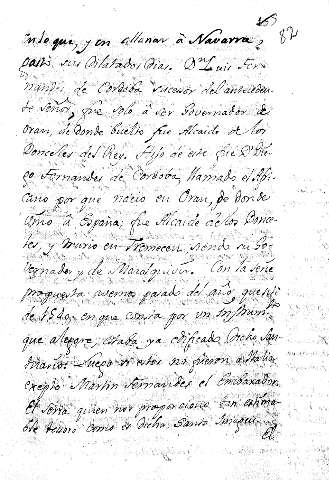 82
que, y en allanar á Navarra,
pasó sus dilatados dias. Dn. Luis Fer-
nandes de Cordoba sucesor del antecedente
Señor, que solo á ser Governador de
Oran, de donde buelto fue Alcaide de los
Donceles del Rey. Hijo de este fue Dn. Die-
go Fernandes de Cordoba, llamado el Afri-
cano por que nacio en Oran, de donde
vino á España; fue Alcaide de los Donce-
les, y murio en Tremecen siendo su Go-
vernador y de Masalquivir. Con la serie
propuesta avemos pasado del año, que
de 1549 en que consta por un Instrum.to
que alegre, estaba ya edificado dicho San-
tuario. Luego si estos no fueron á Italia
exepto Martin Fernandes el Embaxador,
él seria quien nos proporciono tan estima-
ble tesoro como es dicha Santa Imagen.
El